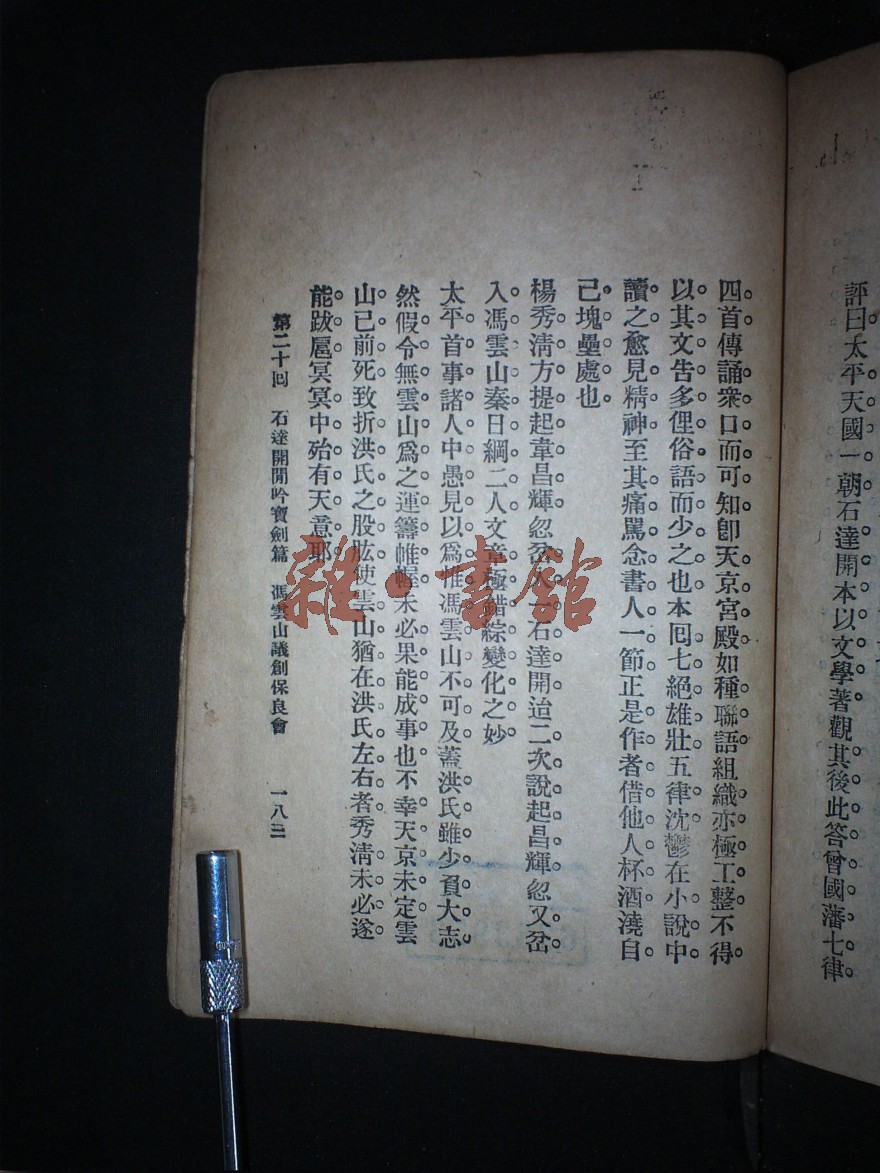 評曰太平天國一朝石達開本以文學著觀其後此答曾國藩七律
四首傳誦衆口而可知卽天京宮殿如種聯語組織亦極工整不得
以其文告多俚俗語而少之也本囘七絕雄壯五律沈鬱在小說中
讀之愈見精神至其痛駡念書人一節正是作者借他人杯酒澆自
己塊壘處也
楊秀淸方提起韋昌輝忽岔入一石達開迨二次說起昌輝忽又岔
入馮雲山秦日綱二人文章極錯綜變化之妙
太平首事諸人中愚見以爲惟馮雲山不可及蓋洪氏雖少負大志
然假令無雲山爲之運籌帷幄未必果能成事也不幸天京未定雲
山已前死致折洪氏之股肱使雲山猶在洪氏左右者秀淸未必遂
能跋扈冥冥中殆有天意耶
第二十囘 石達開閒吟寶劍篇 馮雲山議創保良會 一八三
雜·書館